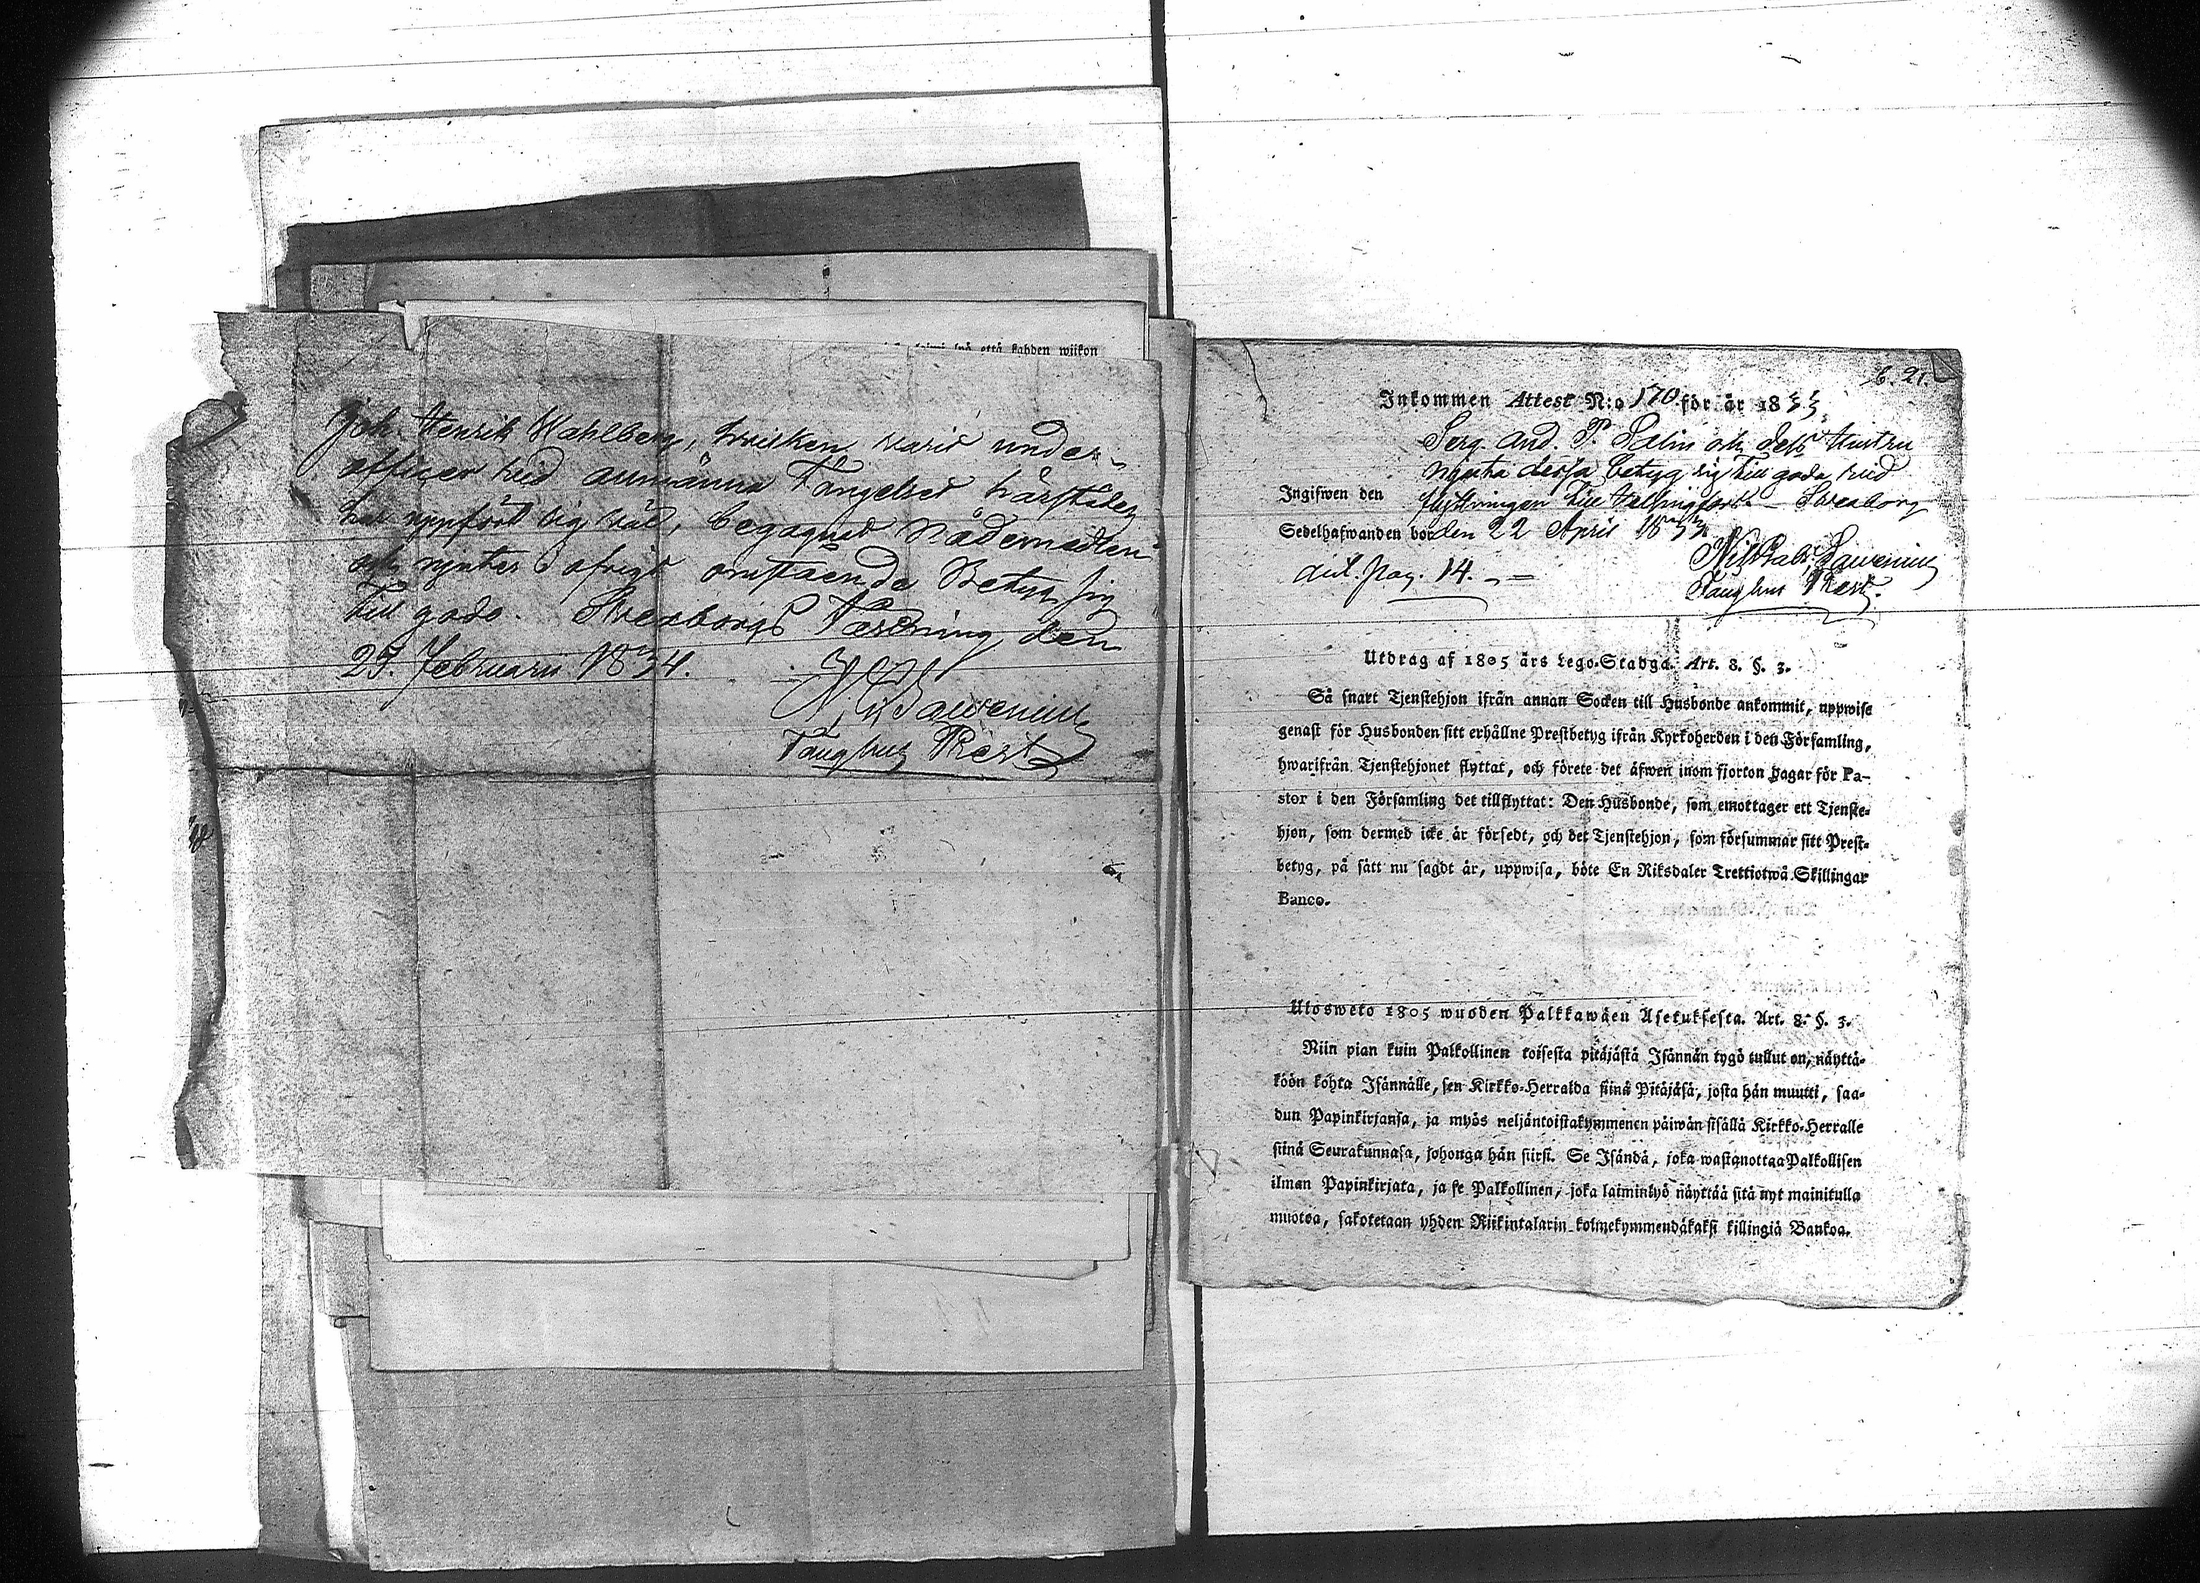 faimi syå että kahden wiikon
Joh. Henrik Wahlberg, hwilken warit under-
officer wid allmänna Fängelset härstädes
har uppfört sig wäl, begagnat Nådemedlen
och njuter i öfrigt omstående Betyg sig
till godo. Sweaborgs Fästning den
25. Februarii 1834.
N. G. Lawenius
Tånghus Præst
b. 21.
Inkommen Attest N:o 170 för år 1833
Serg. And. P. Salin och dess Hustru
njuta dessa betyg sig till godo wid
Ingifwen den flyttningen till Helsingfors – Sweaborg
Sedelhafwanden bor den 22 April 1833
Nils Gabr. Lawenius
Tånghus Præst.
aul. pag. 14. –
Utdrag af 1805 års Lego-Stadga. Art. 8. §. 3.
Så snart Tjenstehjon ifrån annan Socken till Husbonde ankommit, uppwise
genast för Husbonden sitt erhållne Prestbetyg ifrån Kyrkoherden i den Församling,
hwarifrån Tjenstehjonet flyttat, och förete det äfwen inom fjorton dagar för Pa-
stor i den Församling det tillflyttat: Den Husbonde, som emottager ett Tjenste-
hjon, som dermed icke är försedt, och det Tjenstehjon, som försummar sitt Prest-
betyg, på sätt nu sagdt är, uppwisa, böte En Riksdaler Trettiotwå Skillingar
Banco.
Ulosweto 1805 wuoden Palkkawäen Asetuksesta. Art. 8. §. 3.
Niin pian kuin Palkollinen toisesta pitäjästä Isännän tygö tullut on, näyttä-
köön kohta Isännälle, sen Kirkko-Herralda siinä Pitäjäsä, josta hän muutti, saa-
dun Papinkirjansa, ja myös neljäntoistakymmenen päiwän sisällä Kirkko-Herralle
siinä Seurakunnasa, johonga hän siirsi. Se Isändä, joka wastanottaa Palkollisen
ilman Papinkirjata, ja se Palkollinen, joka laiminlyö näyttää sitä nyt mainitulla
muotoa, sakotetaan yhden Riikintalarin kolmekymmendäkaksi killingiä Bankoa.